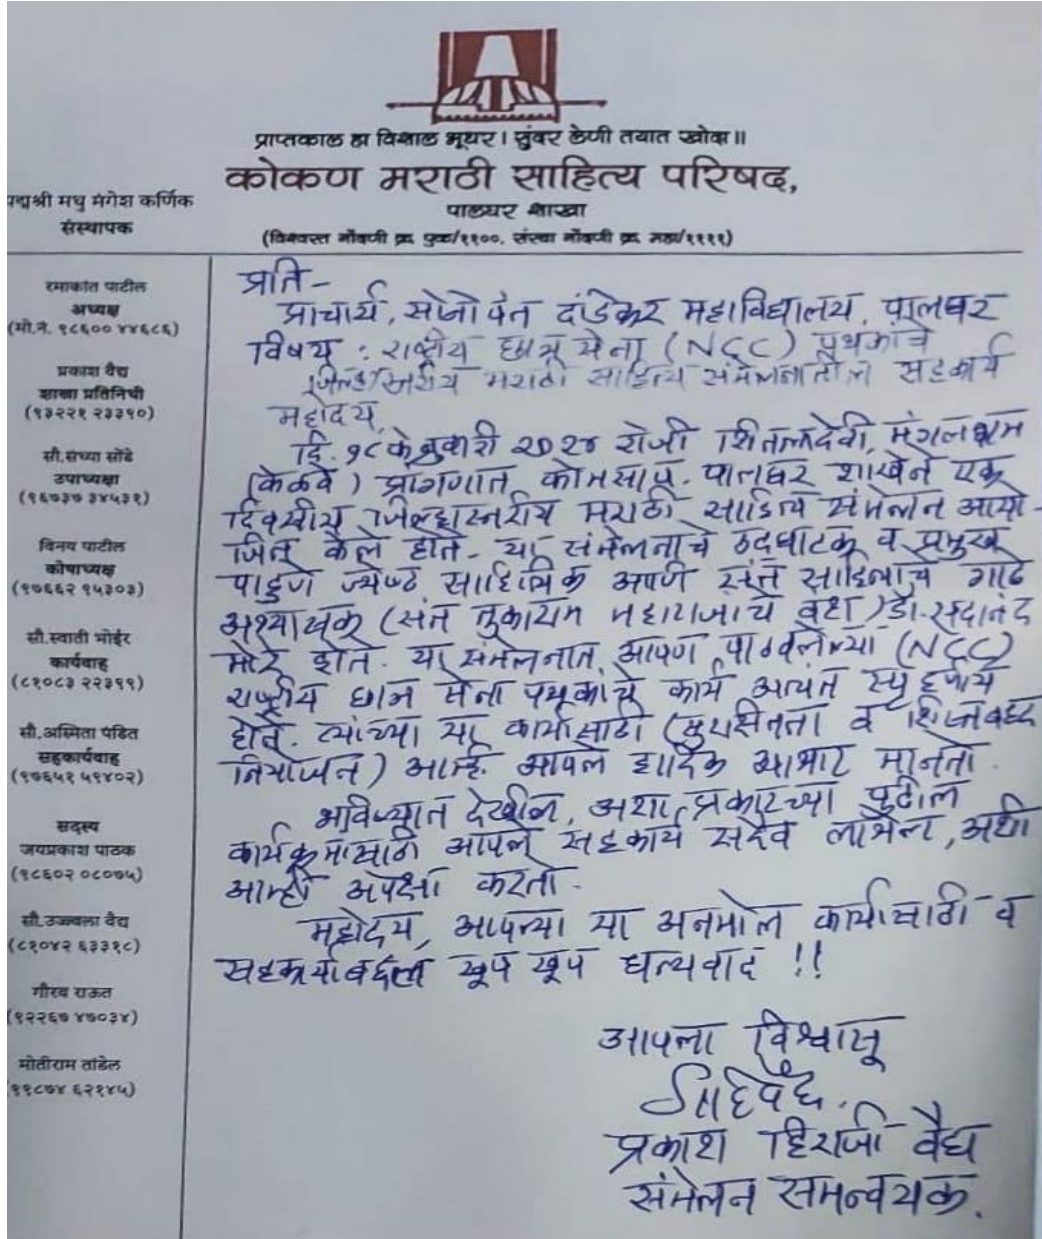 प्राप्तकाल हा विशाल भूधर। सुंदर लेणी तयात खोदा॥
कोकण मराठी साहित्य परिषद,
पालघर शाखा
(विश्वस्त नोंदणी क्र. एफ/११००, संस्था नोंदणी क्र. महा/११११)
पद्मश्री मधु मंगेश कर्णिक
संस्थापक
रमाकांत पाटील
अध्यक्ष
(मो.नं. ९८६०० ४४६८६)
प्रकाश वैद्य
शाखा प्रतिनिधी
(९३२२१ २३३९०)
सौ.संध्या सोंडे
उपाध्यक्षा
(९६७३७ ३४५३१)
विनय पाटील
कोषाध्यक्ष
(९७६६२ ९५३०३)
सौ.स्वाती भोईर
कार्यवाह
(८१०८३ २२३९९)
सौ.अस्मिता पंडित
सहकार्यवाह
(९७६५१ ५९४०२)
सदस्य
जयप्रकाश पाठक
(९८६०२ ०८०७५)
सौ.उज्ज्वला वैद्य
(८१०४२ ६३३१८)
गौरव राऊत
(९२२६७ ४७०३४)
मोतीराम तांडेल
(९९८७४ ६२१४५)
प्रति-
प्राचार्य, सोनोपंत दांडेकर महाविद्यालय, पालघर
विषय : राष्ट्रीय छात्र सेना (NCC) पथकाचे
जिल्हास्तरीय मराठी साहित्य संमेलनातील सहकार्य
महोदय,
दि. १८ फेब्रुवारी २०२४ रोजी शितलादेवी, मंगलधाम
(केळवे) प्रांगणात कोमसाप. पालघर शाखेने एक
दिवसीय जिल्हास्तरीय मराठी साहित्य संमेलन आयो-
जित केले होते. या संमेलनाचे उदघाटक व प्रमुख
पाहुणे ज्येष्ठ साहित्यिक आणि संत साहित्याचे गाढे
अभ्यासक (संत तुकाराम महाराजांचे वंशज) डॉ. सदानंद
मोरे होते. या संमेलनात आपण पाठवलेल्या (NCC)
राष्ट्रीय छात्र सेना पथकाचे कार्य अत्यंत स्पृहणीय
होते. त्यांच्या या कार्यासाठी ( व शिस्तबद्ध
नियोजन) आम्ही आपले हार्दिक आभार मानतो.
भविष्यात देखील, अशा प्रकारच्या पुढील
कार्यक्रमासाठी आपले सहकार्य सदैव लाभेल, अशी
आम्ही अपेक्षा करतो.
महोदय, आपल्या या अनमोल कार्यासाठी व
सहकार्याबद्दल खूप खूप धन्यवाद !!
आपला विश्वासू
प्रकाश हिराजी वैद्य
संमेलन समन्वयक.